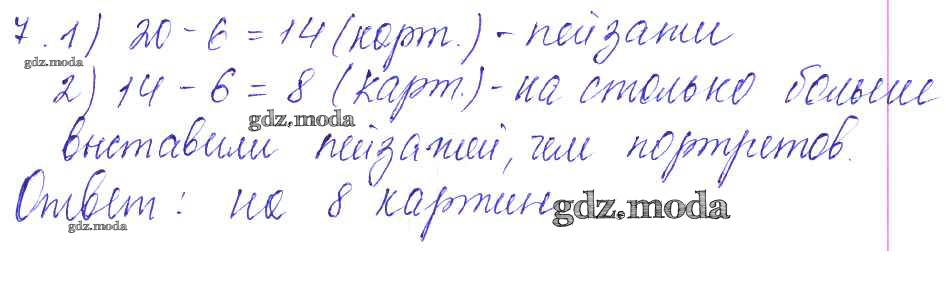 7. 1) 20 - 6 = 14 (карт.) - пейзажи
gdz.moda
2) 14 - 6 = 8 (карт.) - на столько больше
gdz.moda
выставили пейзажей, чем портретов.
Ответ: на 8 картин
gdz.moda
gdz.moda